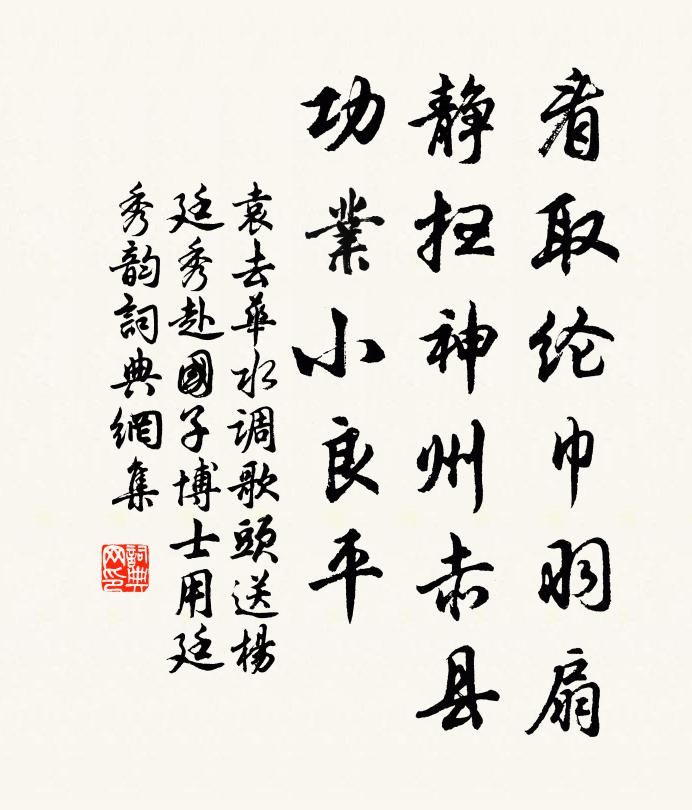 看取纶巾羽扇
静扫神州赤县
功業小良平
袁去華水调歌頭送楊
廷秀赴國子博士用廷
秀韵詞典網集
詞典網印